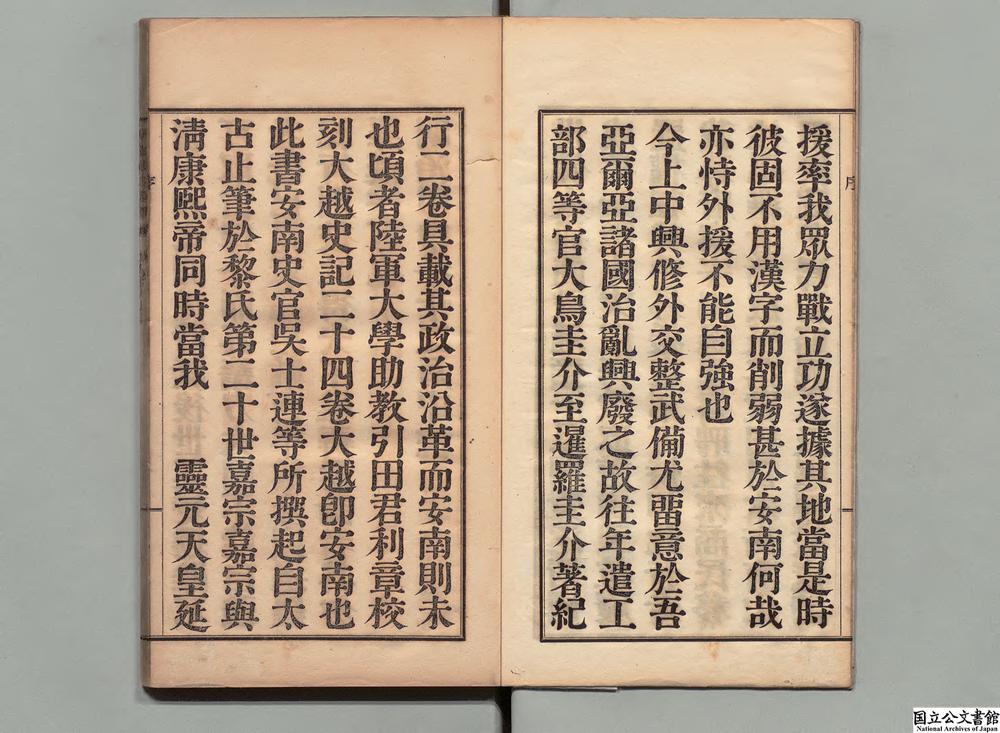 序
援率我眾力戰立功遂據其地當是時
彼固不用漢字而削弱甚於安南何哉
亦恃外援不能自強也
今上中興修外交整武備尤畱意於吾
亞爾亞諸國治亂興廢之故往年遣工
部四等官大鳥圭介至暹羅圭介著紀
行二卷具載其政治沿革而安南則未
也頃者陸軍大學助教引田君利章校
刻大越史記二十四卷大越卽安南也
此書安南史官吳士連等所撰起自太
古止筆於黎氏第二十世嘉宗嘉宗與
淸康熙帝同時當我 靈元天皇延
国立公文書館
National Archives of Japan